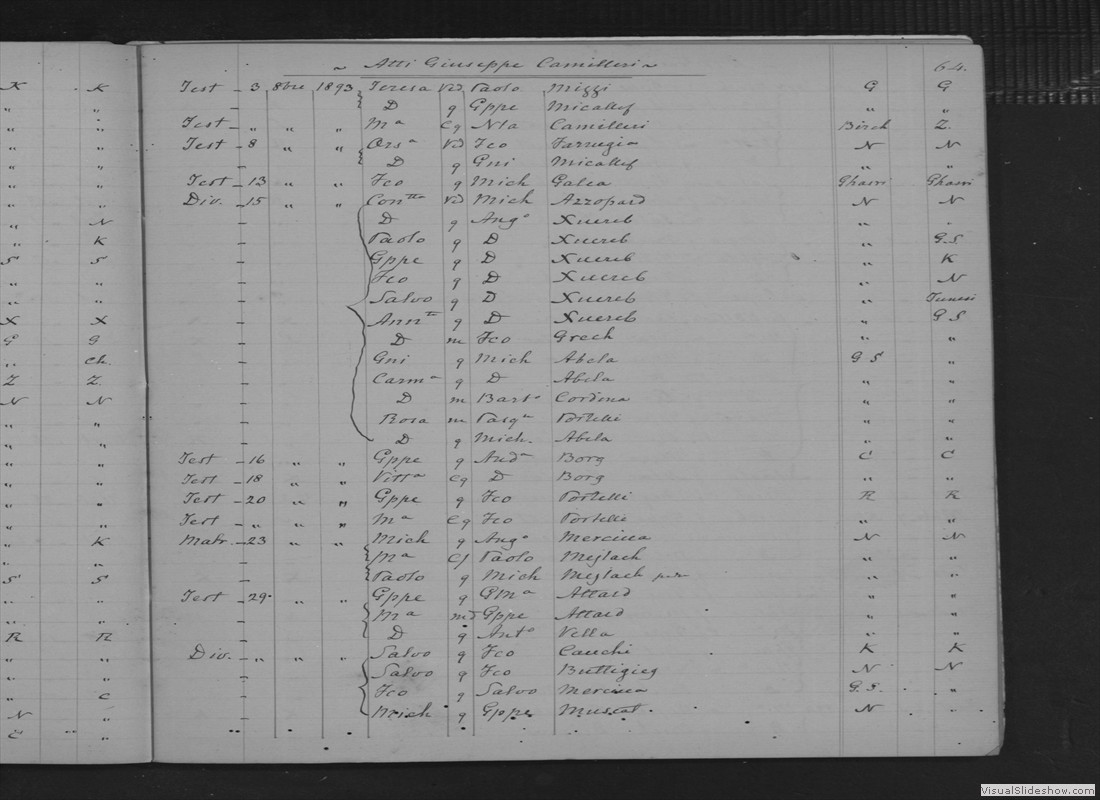 Atti Giuseppe Camilleri
64.
K K Test – 3 8bre 1893 Teresa Vd Paolo Mizzi G G
" " D g Gppe Micallef "
" " Test – " " " Ma Cg Nla Camilleri Birch Z.
" " Test – 8 " " Orsa Vd Fco Farrugia N N
" " D g Gni Micallef " "
" " Test – 13 " " Fco g Mich Galea Gharri Gharri
" " Div. – 15 " " Contta Vd Mich Azzopard N N
" N D g Ango Xuereb " "
" K Paolo g D Xuereb " G.S
S S Gppe g D Xuereb " K
" " Fco g D Xuereb " N
" " Salvo g D Xuereb " Tunisi
X X Anntta g D Xuereb " G S
G G D m Fco Grech " "
" Ch. Gni g Mich Abela G S "
Z Z. Carma g D Abela " "
N N D m Barto Cordina " "
" " Rosa m Pasqa Portelli " "
" " D g Mich. Abela " "
" " Test – 16 " " Gppe g Anda Borg C C
" " Test – 18 " " Vitta Cg D Borg " "
" " Test – 20 " " Gppe g Fco Portelli R R
" " Test – " " " Ma Cg Fco Portelli " "
" K Matr. – 23 " " Mich g Ango Mercieca N N
" " Ma Cf Paolo Mejlach " "
S S Paolo g Mich Mejlach " "
" " Test – 29. " " Gppe g GMa Attard " "
" " Ma md Gppe Attard " "
R R D g Anto Vella " "
" " Div. – " " " Salvo g Fco Cauchi K K
" " Salvo g Fco Buttigieg N N
" C Fco g Salvo Mercieca G.S. "
N " Mich g Gppe Muscat. N "
C "
VisualSlideshow.com